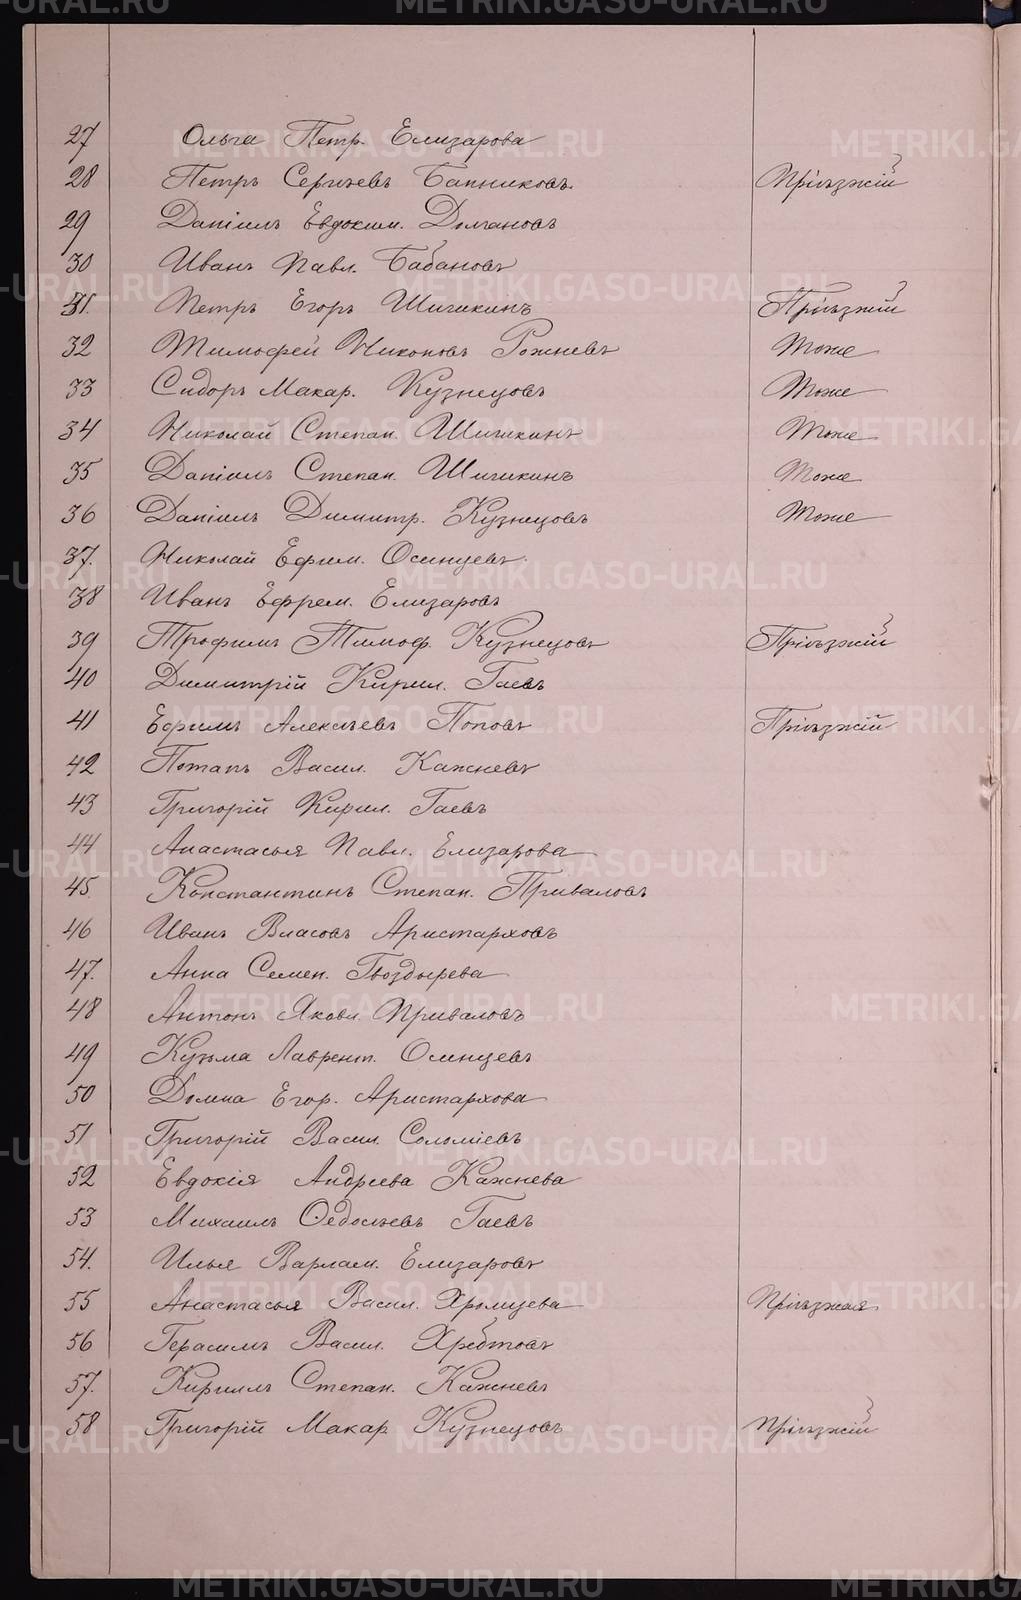 27 Ольга Петр. Елизарова
28 Петръ Сергѣевъ Банниковъ. Пріѣзжій
29 Даніилъ Евдоким. Долгановъ
30 Иванъ Павл. Бабановъ
31. Петръ Егоръ Шишкинъ Пріѣзжій
32 Тимофей Никоновъ Рожневъ Тоже
33 Сидоръ Макар. Кузнецовъ Тоже
34 Николай Степан. Шишкинъ Тоже
35 Даніилъ Степан. Шишкинъ Тоже
36 Даніилъ Димитр. Кузнецовъ Тоже
37. Николай Ефим. Осинцевъ
38 Иванъ Ефрем. Елизаровъ
39 Трофимъ Тимоф. Кузнецовъ Пріѣзжій
40 Димитрій Кирил. Гаевъ
41 Ефимъ Алексѣевъ Поповъ Пріѣзжій
42 Потапъ Васил. Кажневъ
43 Григорій Кирил. Гаевъ
44 Анастасья Павл. Елизарова
45. Константинъ Степан. Приваловъ
46 Иванъ Власовъ Аристарховъ
47. Анна Семен. Гвоздырева
48 Антонъ Яковл. Приваловъ
49 Кузьма Лаврент. Осинцевъ
50 Домна Егор. Аристархова
51 Григорій Васил.
52 Евдокія Андреева Кажнева
53 Михаилъ Ѳедосѣевъ Гаевъ
54. Илья Варлам. Елизаровъ
55 Анастасья Васил. Хромцева Пріѣзжая
56 Герасимъ Васил. Хребтовъ
57. Кириллъ Степан. Кажневъ
58 Григорій Макар Кузнецовъ Пріѣзжій
METRIKI.GASO-URAL.RU